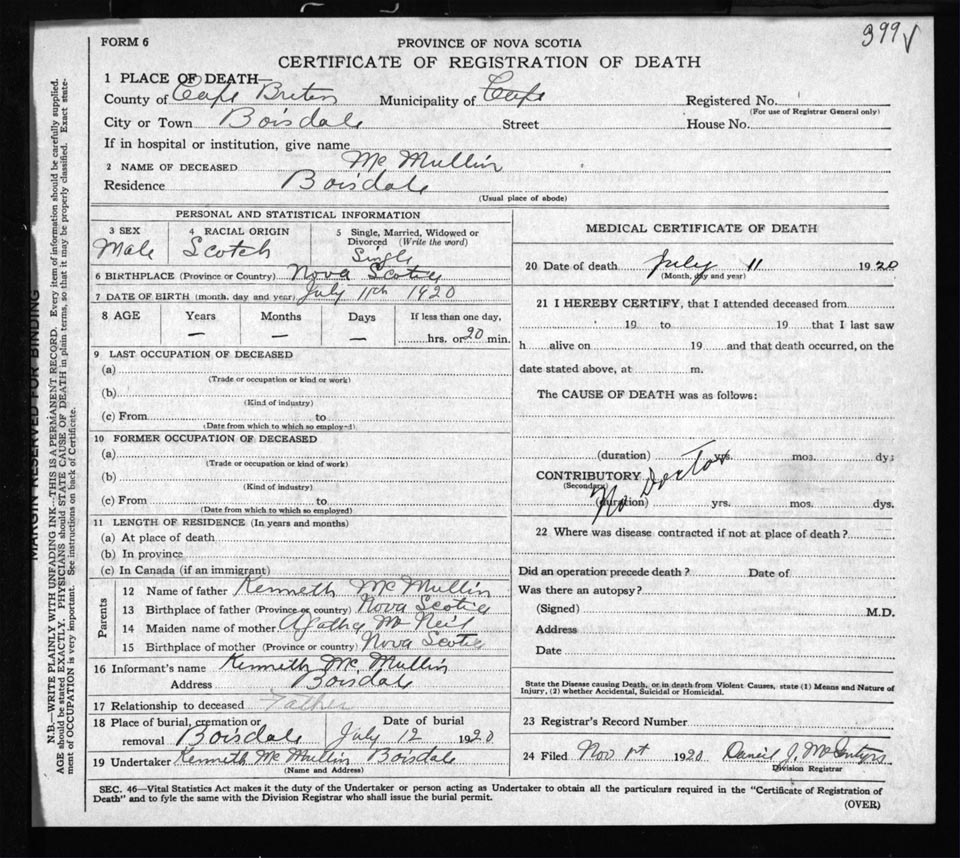 399 √
FORM 6
PROVINCE OF NOVA SCOTIA
CERTIFICATE OF REGISTRATION OF DEATH
1 PLACE OF DEATH—
County of Cape Breton Municipality of Cape Registered No.
(For use of Registrar General only)
City or Town Boisdale Street House No.
If in hospital or institution, give name
2 NAME OF DECEASED Mc Mullin
Residence Boisdale
(Usual place of abode)
PERSONAL AND STATISTICAL INFORMATION
3 SEX 4 RACIAL ORIGIN 5 Single, Married, Widowed or
Divorced (Write the word)
Male Scotch Single
6 BIRTHPLACE (Province or Country) Nova Scotia
7 DATE OF BIRTH (month, day and year) July 11th 1920
8 AGE Years Months Days If less than one day,
— — — hrs. or 20 min.
9 LAST OCCUPATION OF DECEASED
(a)
(Trade or occupation or kind or work)
(b)
(Kind of industry)
(c) From to
(Date from which to which so employed)
10 FORMER OCCUPATION OF DECEASED
(a)
(Trade or occupation or kind of work)
(b)
(Kind of industry)
(c) From to
(Date from which to which so employed)
11 LENGTH OF RESIDENCE (In years and months)
(a) At place of death
(b) In province
(c) In Canada (if an immigrant)
Parents
12 Name of father Kenneth Mc Mullin
13 Birthplace of father (Province or country) Nova Scotia
14 Maiden name of mother Agatha Mc Neil
15 Birthplace of mother (Province or country) Nova Scotia
16 Informant's name Kenneth Mc Mullin
Address Boisdale
17 Relationship to deceased Father
18 Place of burial, cremation or Date of burial
removal Boisdale July 12 1920
19 Undertaker Kenneth Mc Mullin Boisdale
(Name and Address)
MEDICAL CERTIFICATE OF DEATH
20 Date of death July 11 1920
(Month, day and year)
21 I HEREBY CERTIFY, that I attended deceased from
19 to 19 that I last saw
h alive on 19 and that death occurred, on the
date stated above, at m.
The CAUSE OF DEATH was as follows:
(duration) yrs. mos. dys
CONTRIBUTORY
(Secondary)
No Doctor
(duration) yrs. mos. dys.
22 Where was disease contracted if not at place of death?
Did an operation precede death? Date of
Was there an autopsy?
(Signed) M.D.
Address
Date
State the Disease causing Death, or in death from Violent Causes, state (1) Means and Nature of
Injury, (2) whether Accidental, Suicidal or Homicidal.
23 Registrar's Record Number
24 Filed Nov 1st 1920 Daniel J. McIntyre
Division Registrar
SEC. 46—Vital Statistics Act makes it the duty of the Undertaker or person acting as Undertaker to obtain all the particulars required in the "Certificate of Registration of
Death" and to fyle the same with the Division Registrar who shall issue the burial permit.
(OVER)
MARGIN RESERVED FOR BINDING
N.B.—WRITE PLAINLY WITH UNFADING INK—THIS IS A PERMANENT RECORD. Every item of information should be carefully supplied.
AGE should be stated EXACTLY. PHYSICIANS should STATE CAUSE OF DEATH in plain terms, so that it may be properly classified. Exact state-
ment of OCCUPATION is very important. See instructions on back of Certificate.